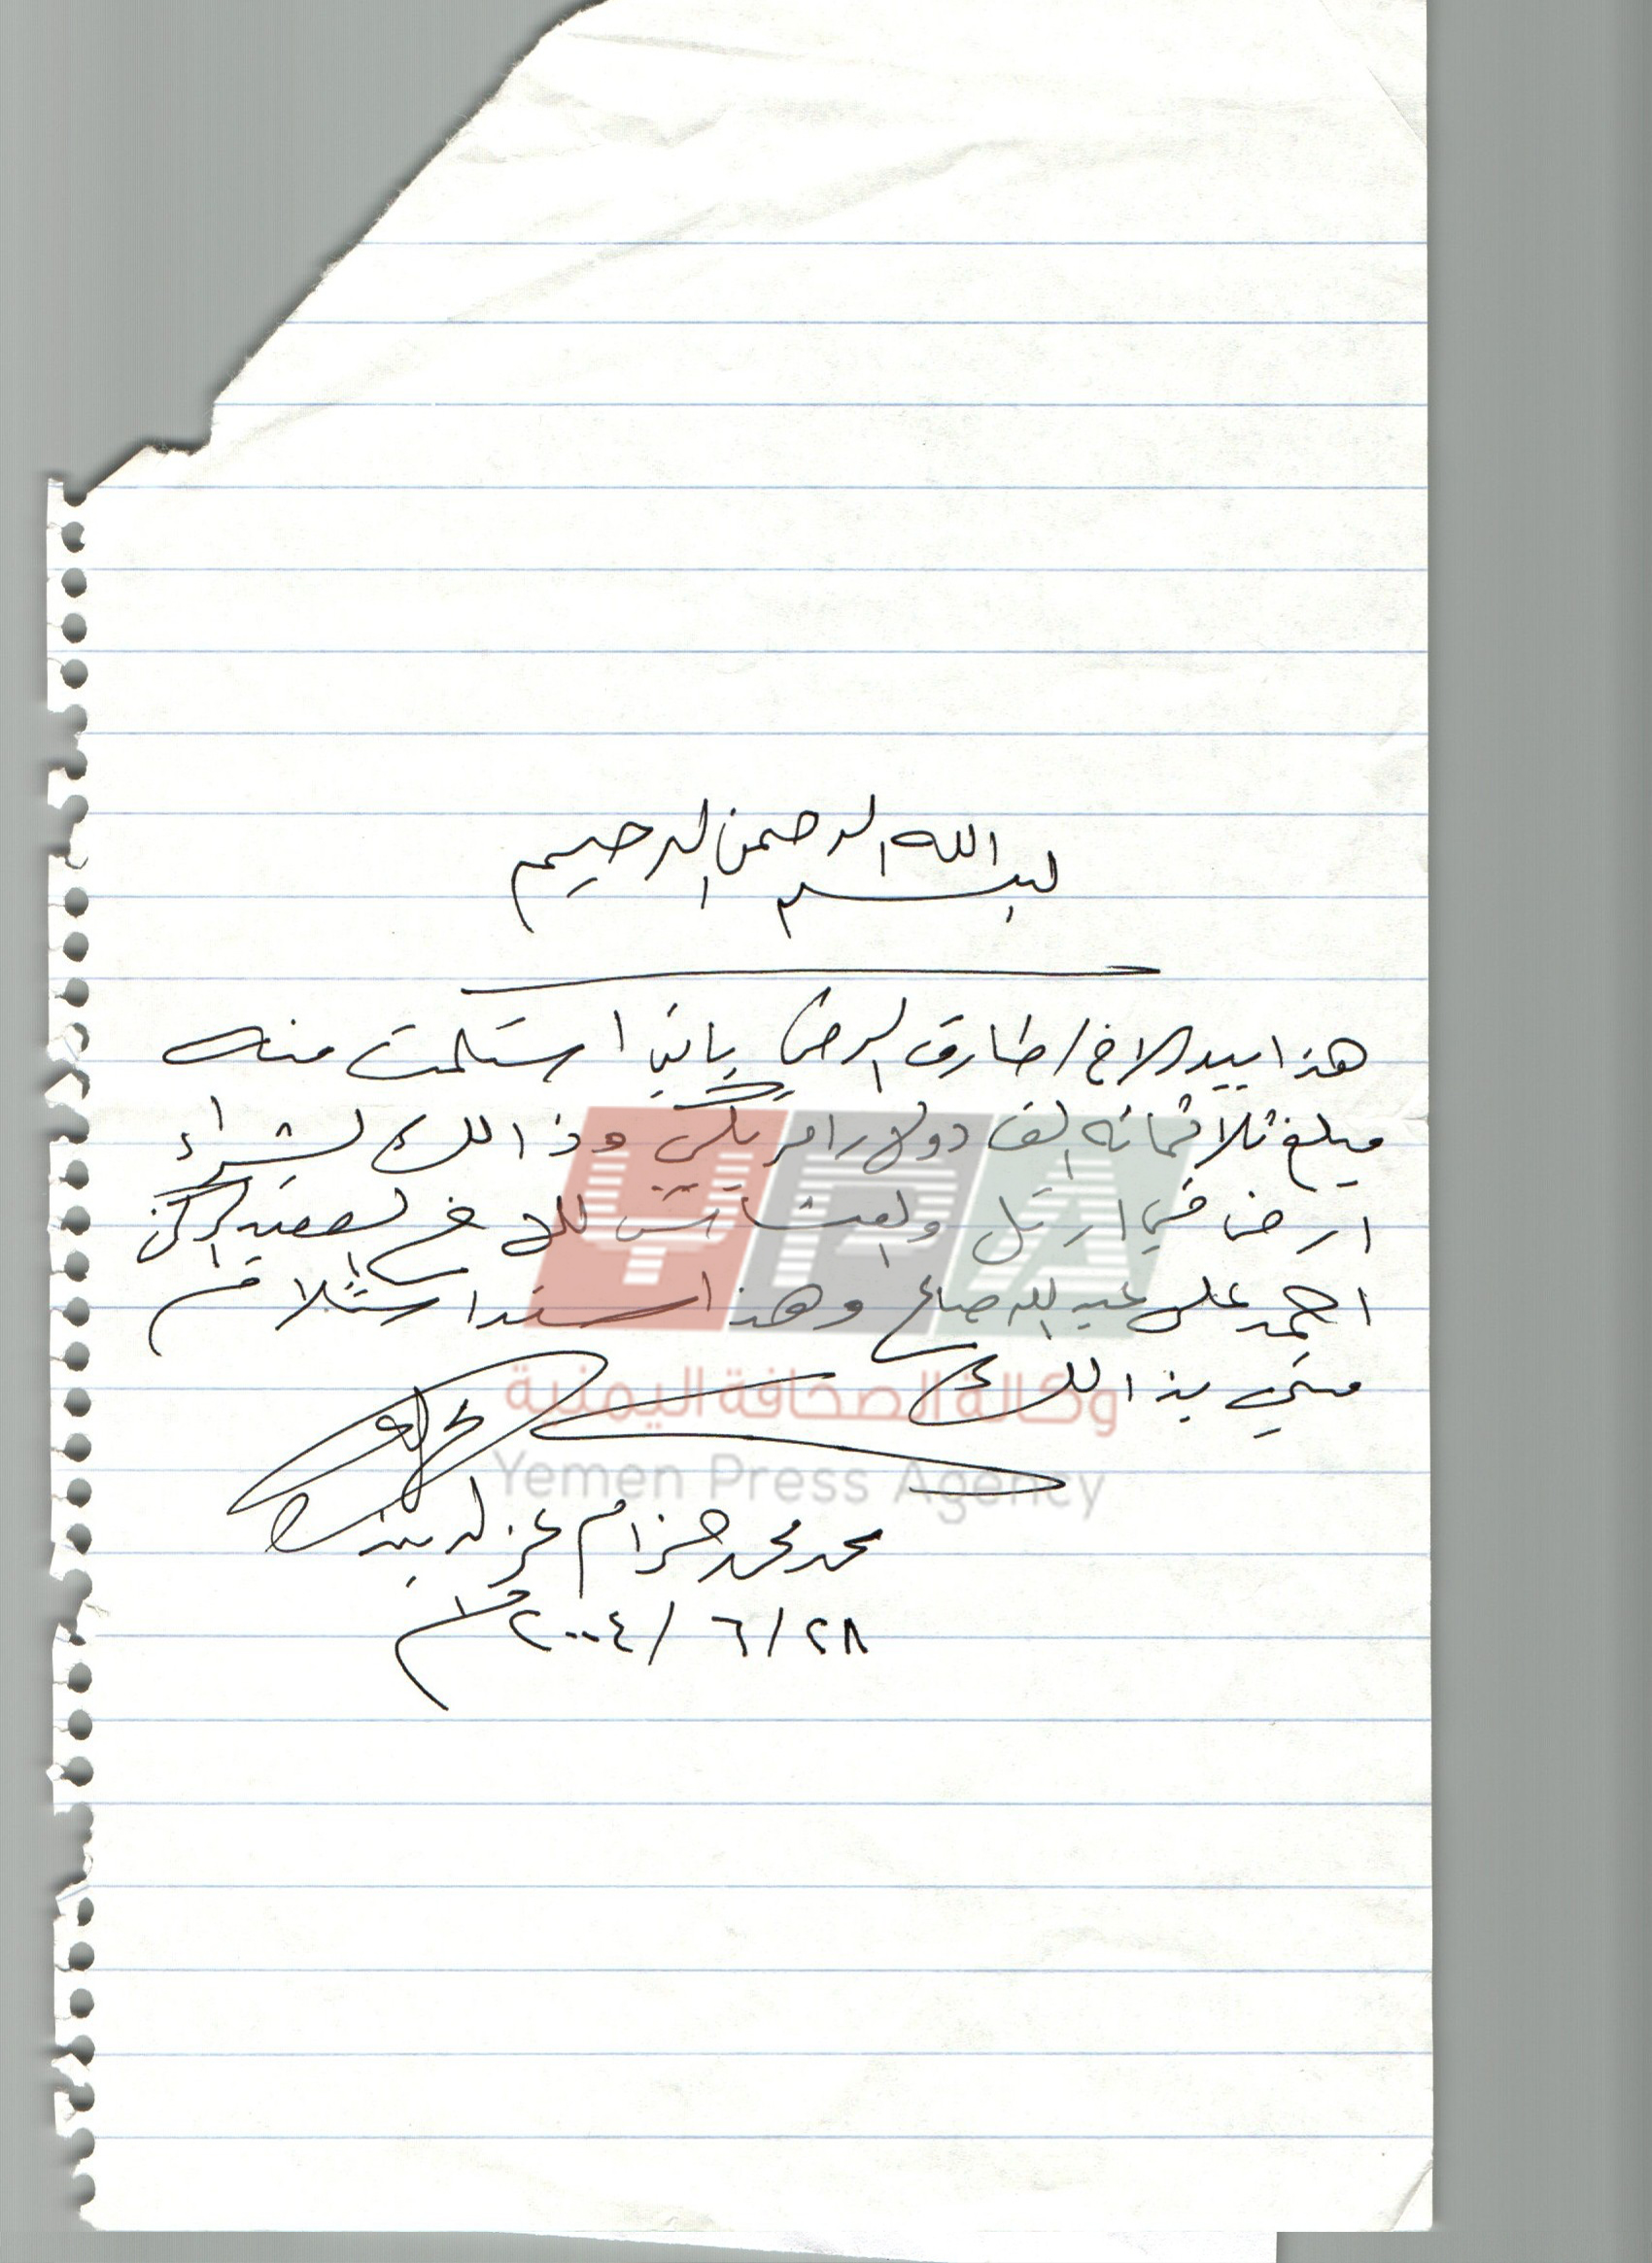 بسم الله الرحمن الرحيم
هذا بيد الاخ / طارق الرضي باني استلمت منه
مبلغ ثلاثمائه الف دولار امريكي وذالك لشراء
ارض في ارتل للاخ العقيد الركن
احمد علي عبدالله صالح وهذا سند استلام
مني بذالك
محمد محمد حزام عزالدين
٢٨ / ٦ / ٢٠٠٤م
YPA
وكالة الصحافة اليمنية
Yemen Press Agency